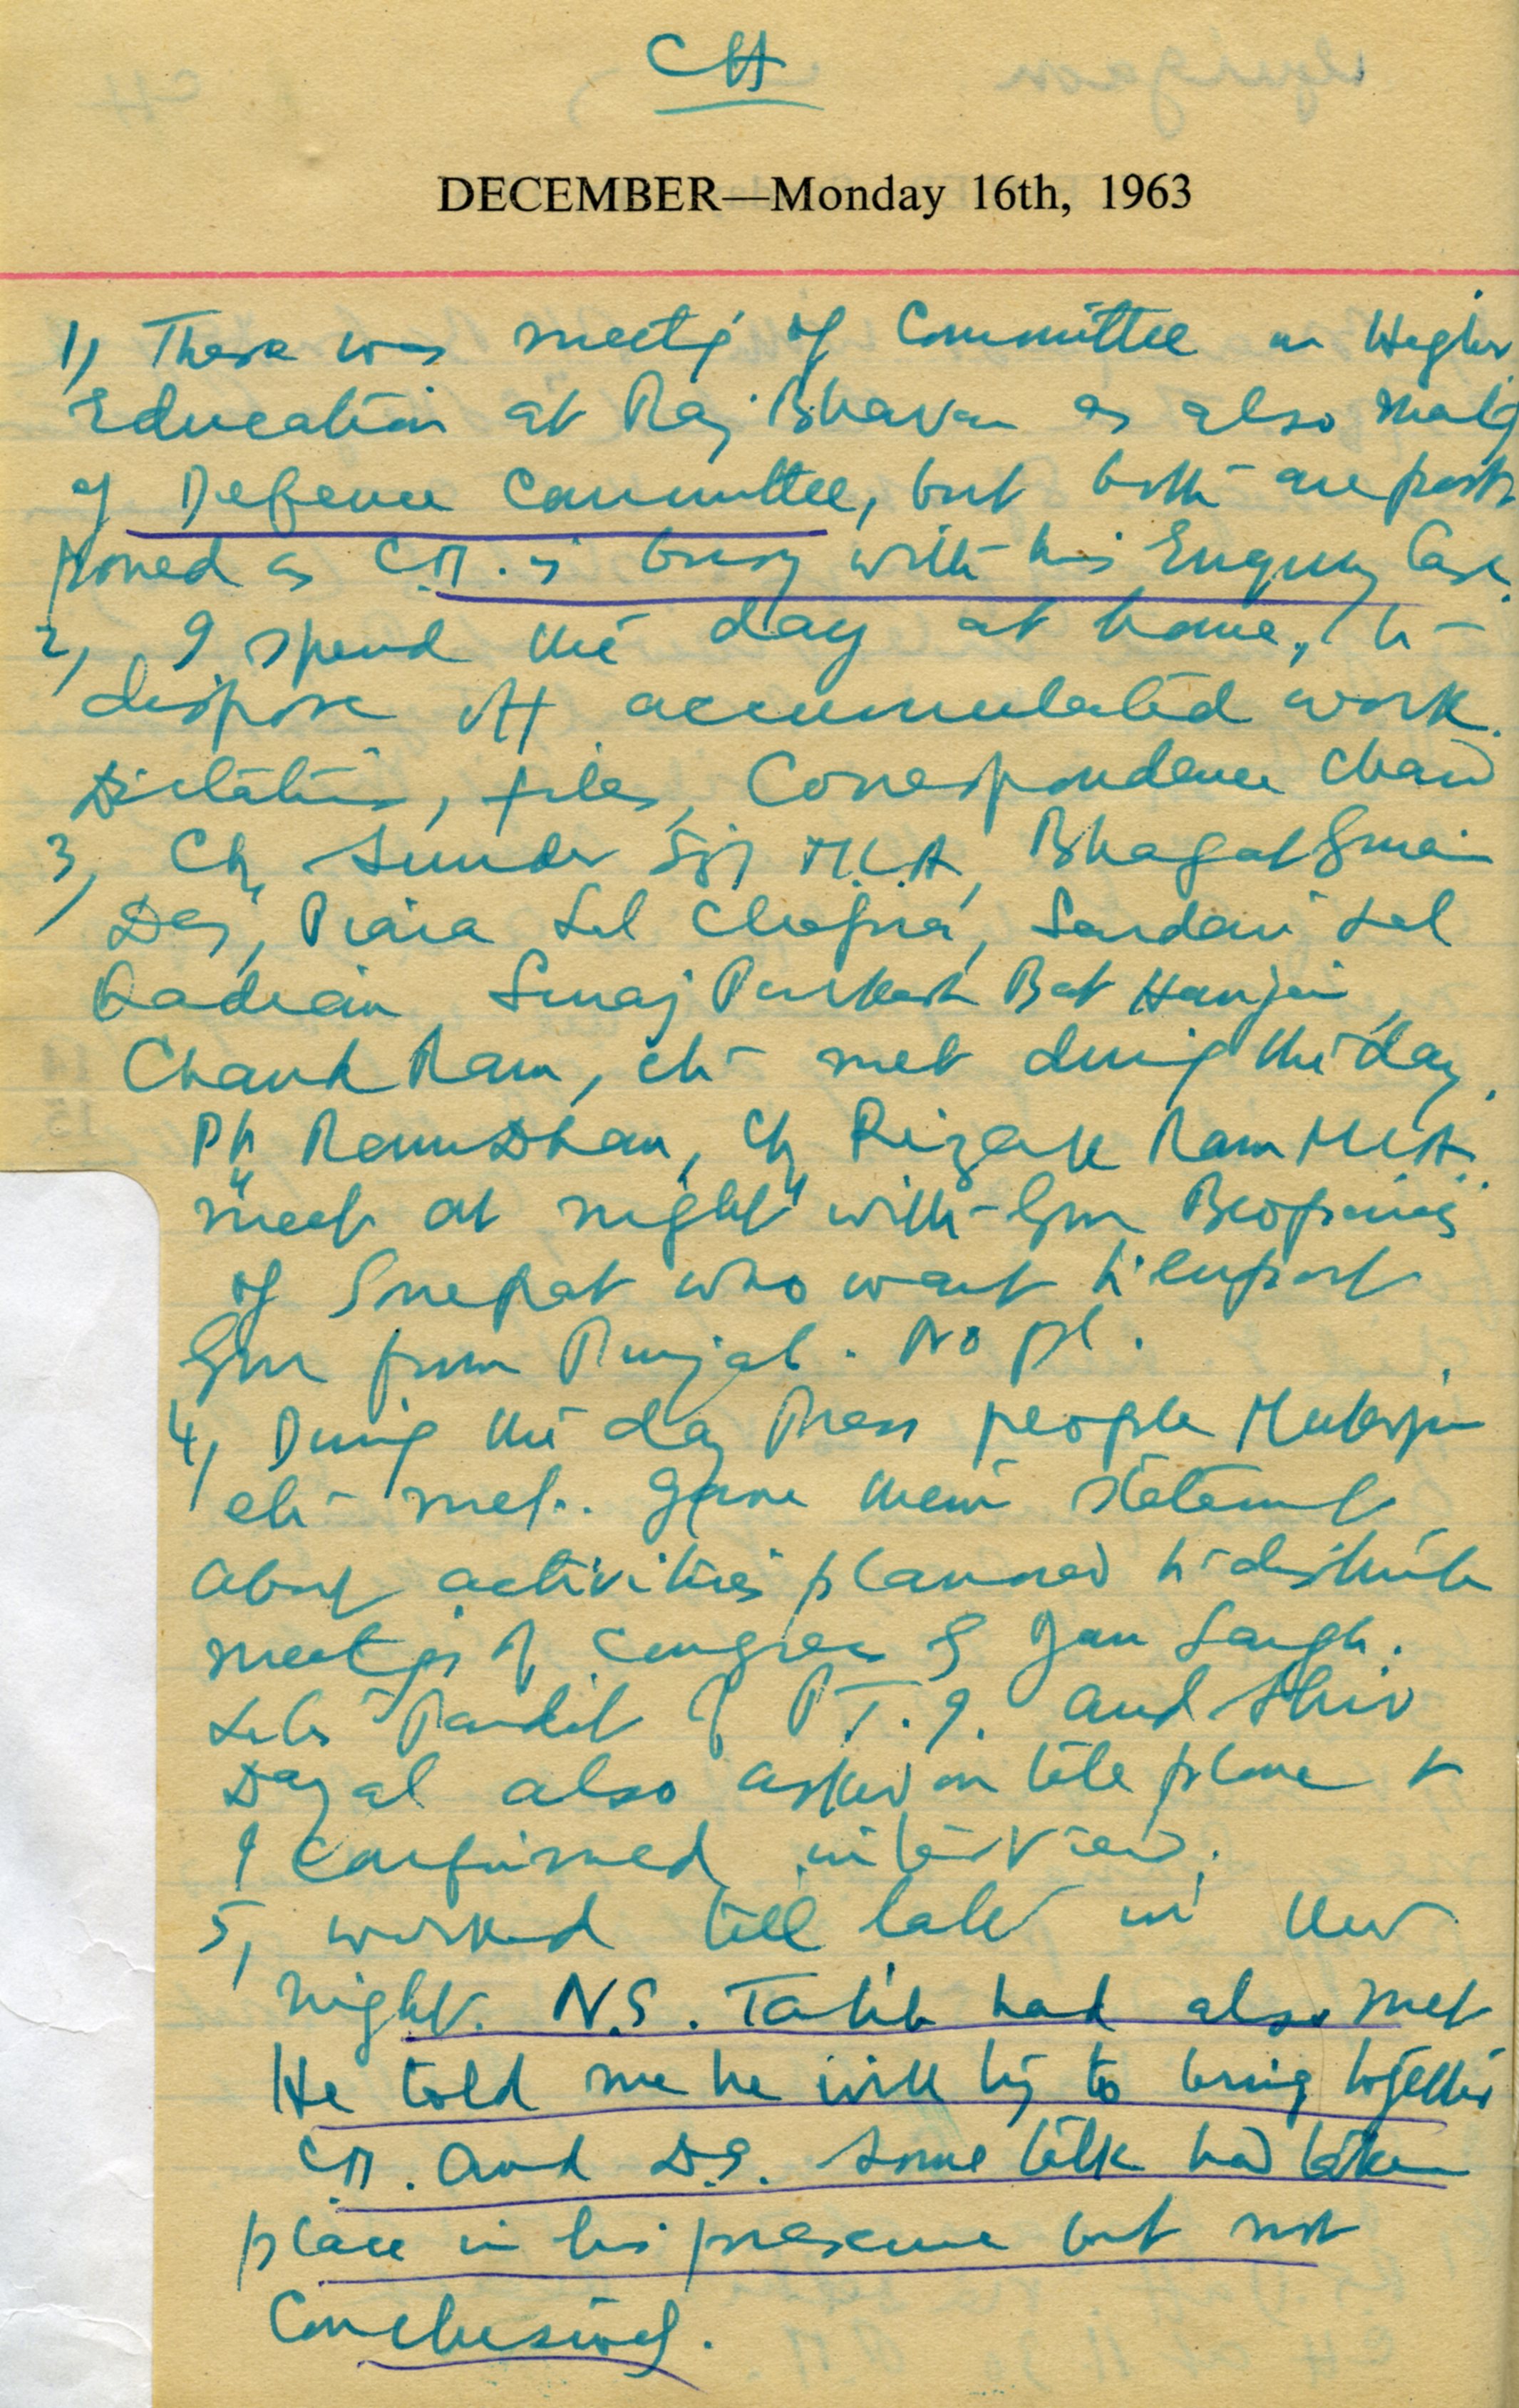 CH
DECEMBER—Monday 16th, 1963
1, There was meetg of Committee on Higher
Education at Raj Bhavan as also meetg
of Defence Committee, but both are post
poned as C.M. is busy with his Enquiry Case.
2, I spend the day at home, to
dispose off accumulated work.
Dictation, files, Correspondence
3, Ch. Sunder Sgh M.L.A, Bhagat Guran
Das, Piara Lal Chopra, Sardari Lal
Qadian Suraj Parkash Bat
Chank Ram, etc met during the day.
Pt Ram Dhan, Ch Rizak Ram MLA.
"meet at night" with Gur Beoparies
of Sonepat who want to export
Gur from Punjab. No pl.
4, During the day Press people
etc met. Gave them statement
about activities planned to
meetgs of Congress & Jan Sangh.
Pandit of P.T.I. and Shiv
Dayal also asked on telephone &
I confirmed interview.
5, worked till late in the
night. N.S. Talib had also met
He told me he will try to bring together
C.M. and D.S. Some talk had taken
place in his presence but not
Conclusively.